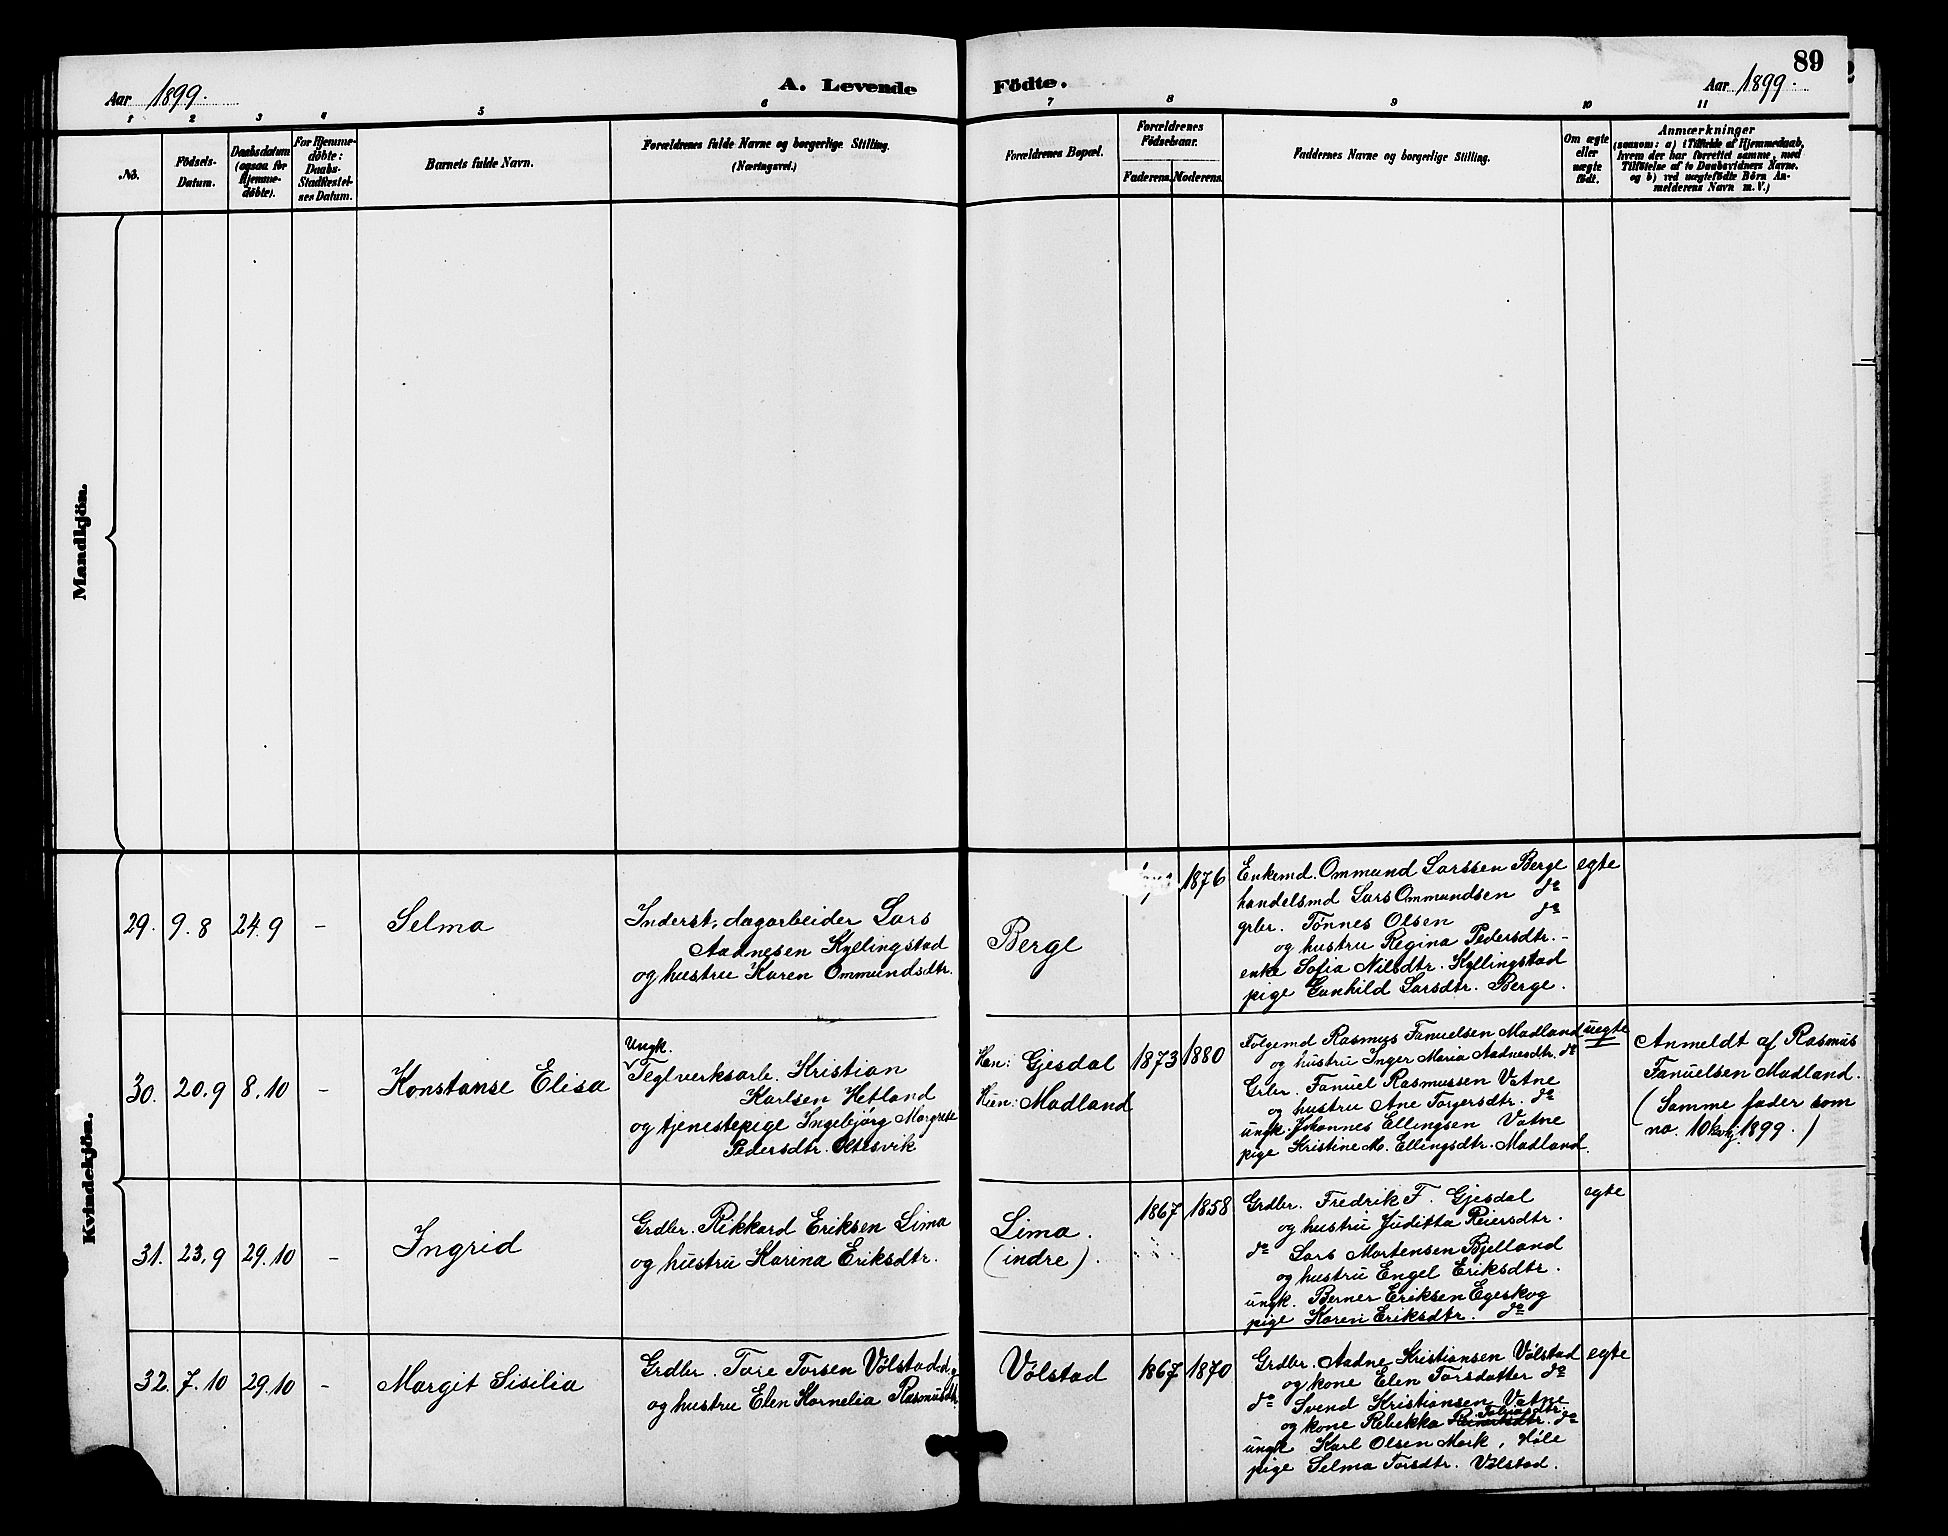 89
Aar 1899.
A. Levende Födte.
Aar 1899.
1 2 3 4 5 6 7 8 9 10 11
No.
Födsels-Datum.
Daabsdatum (ogsaa for Hjemme-döbte).
For Hjemme-döbte: Daabs-Stadfæstel-ses Datum.
Barnets fulde Navn.
Forældrenes fulde Navne og borgerlige Stilling.
(Næringsvei.)
Forældrenes Bopæl.
Forældrenes Födselsaar.
Faderens. Moderens.
Faddernes Navne og borgerlige Stilling.
Om ægte eller uægte födt.
Anmærkninger
(saasom: a) i Tilfælde af Hjemmedaab,
hvem der har forrettet samme, med
Tilföielse af to Daabsvidners Navne.
og b) ved uægtefödte Börn An-
melderens Navn m. V.)
Mandkjön.
Kvindekjön.
29. 9.8 24.9 - Selma
Inderst, dagarbeider Lars
Aadnesen Kyllingstad
og hustru Karen Ommundsdtr.
Berge
1876
Enkemd. Ommund Larssen Berge
handelsmd Lars Ommundsen do
grbr. Tønnes Olsen do
og hustru Regina Pedersdtr. -
enke Sofia Nilsdtr. Kyllingstad
pige Gunhild Larsdtr. Berge.
egte
30. 20.9 8.10 - Konstanse Elisa
Ungk.
Teglverksarb. Kristian
Karlsen Hetland
og tjenestepige Ingebjørg Margrete
Pedersdtr. Oltesvik
Han: Gjesdal
Hun: Madland
1873 1880
Folgemd Rasmus Fanuelsen Madland
og hustru Inger Maria Aadnesdtr. do
Grbr. Fanuel Rasmussen Vatne
og hustru Ane Torgersdtr. do
ungk. Johannes Ellingsen Vatne
pige Kristine M. Ellingsdtr. Madland.
uegte
Anmeldt af Rasmus
Fanuelsen Madland.
(Samme fader som
no. 10 kvkj. 1899.)
31. 23.9 29.10 - Ingrid
Grdbr. Rikkard Eriksen Lima
og hustru Karina Eriksdtr.
Lima.
(indre).
1867 1858
Grdbr. Fredrik F. Gjesdal
og hustru Juditta Reiersdtr.
do Lars Mortensen Bjelland
og hustru Engel Eriksdtr.
ungk. Berner Eriksen Egeskog
pige Karen Eriksdtr. do
egte
32. 7.10 29.10 - Margit Sisilia
Grdbr. Tore Torsen Vølstad
og hustru Elen Kornelia Rasmusdtr.
Vølstad
1867 1870
Grdbr. Aadne Kristiansen Vølstad
og kone Elen Torsdatter do
do Svend Kristiansen Vatne
og kone Rebekka Tobiasdtr. do
ungk Karl Olsen Mork, Høle
pige Selma Torsdtr. Vølstad.
egte